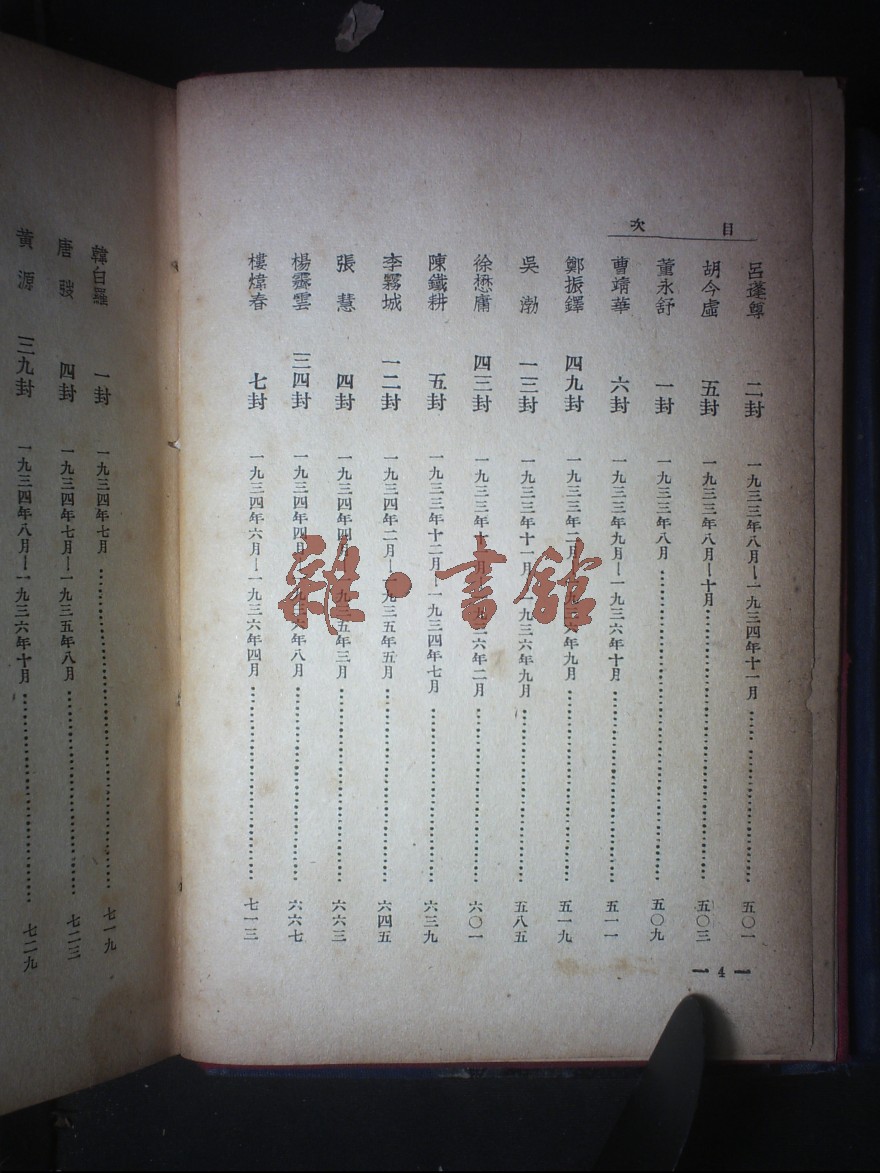 目次
呂蓬尊 二封 一九三三年八月—一九三四年十一月 五〇一
胡今虛 五封 一九三三年八月—十月 五〇三
董永舒 一封 一九三三年八月 五〇九
曹靖華 六封 一九三三年九月—一九三六年十月 五一一
鄭振鐸 四九封 一九三三年二月 一九三六年九月 五一九
吳渤 一三封 一九三三年十一月 一九三六年九月 五八五
徐懋庸 四三封 一九三三年十 月 一九三六年二月 六〇一
陳鐵耕 五封 一九三三年十二月—一九三四年七月 六三九
李霧城 一二封 一九三四年二月—一九三五年五月 六四五
張慧 四封 一九三四年四月 一九三五年三月 六六三
楊霽雲 三四封 一九三四年四月 一九三六年八月 六六七
樓煒春 七封 一九三四年六月—一九三六年四月 七一三
—4—
韓白羅 一封 一九三四年七月 七一九
唐訶 四封 一九三四年七月—一九三五年八月 七二三
黃源 三九封 一九三四年八月—一九三六年十月 七二九
雜·書館